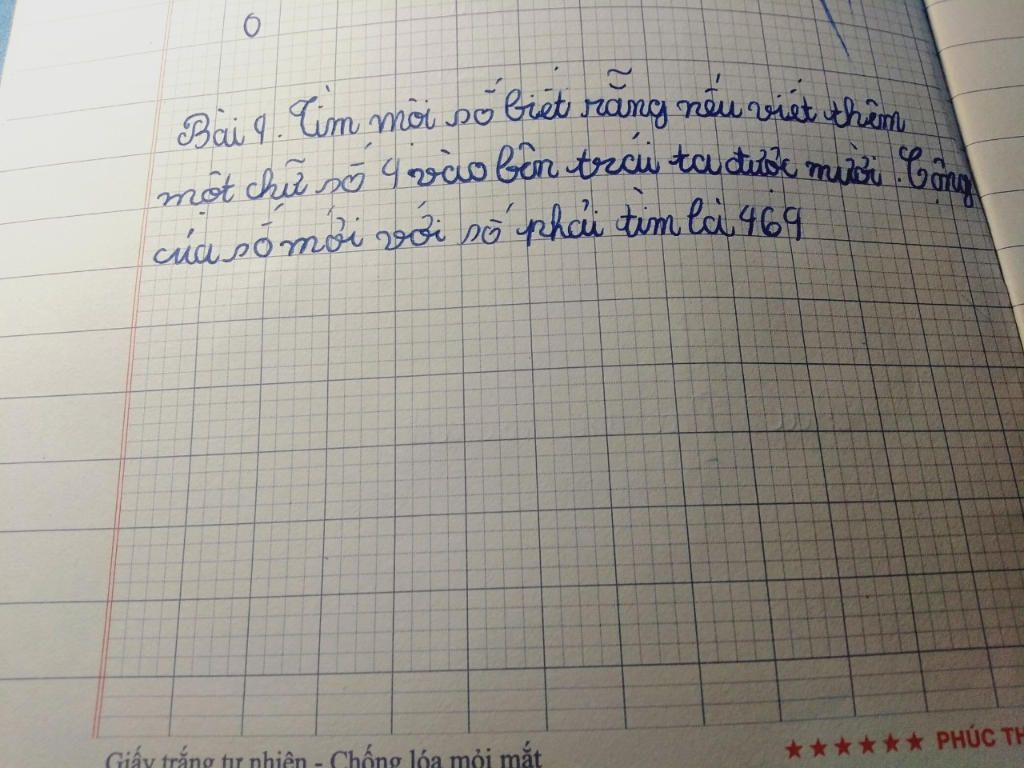 0
Bài 9. Tìm mỗi số biết rẵng nếu viết thêm
một chữ số 4 vào bên trái ta được mười. Cộng
của số mới với số phải tìm là 469
Giấy trắng tự nhiên - Chống lóa mỏi mắt
★★★★★★ PHÚC TH